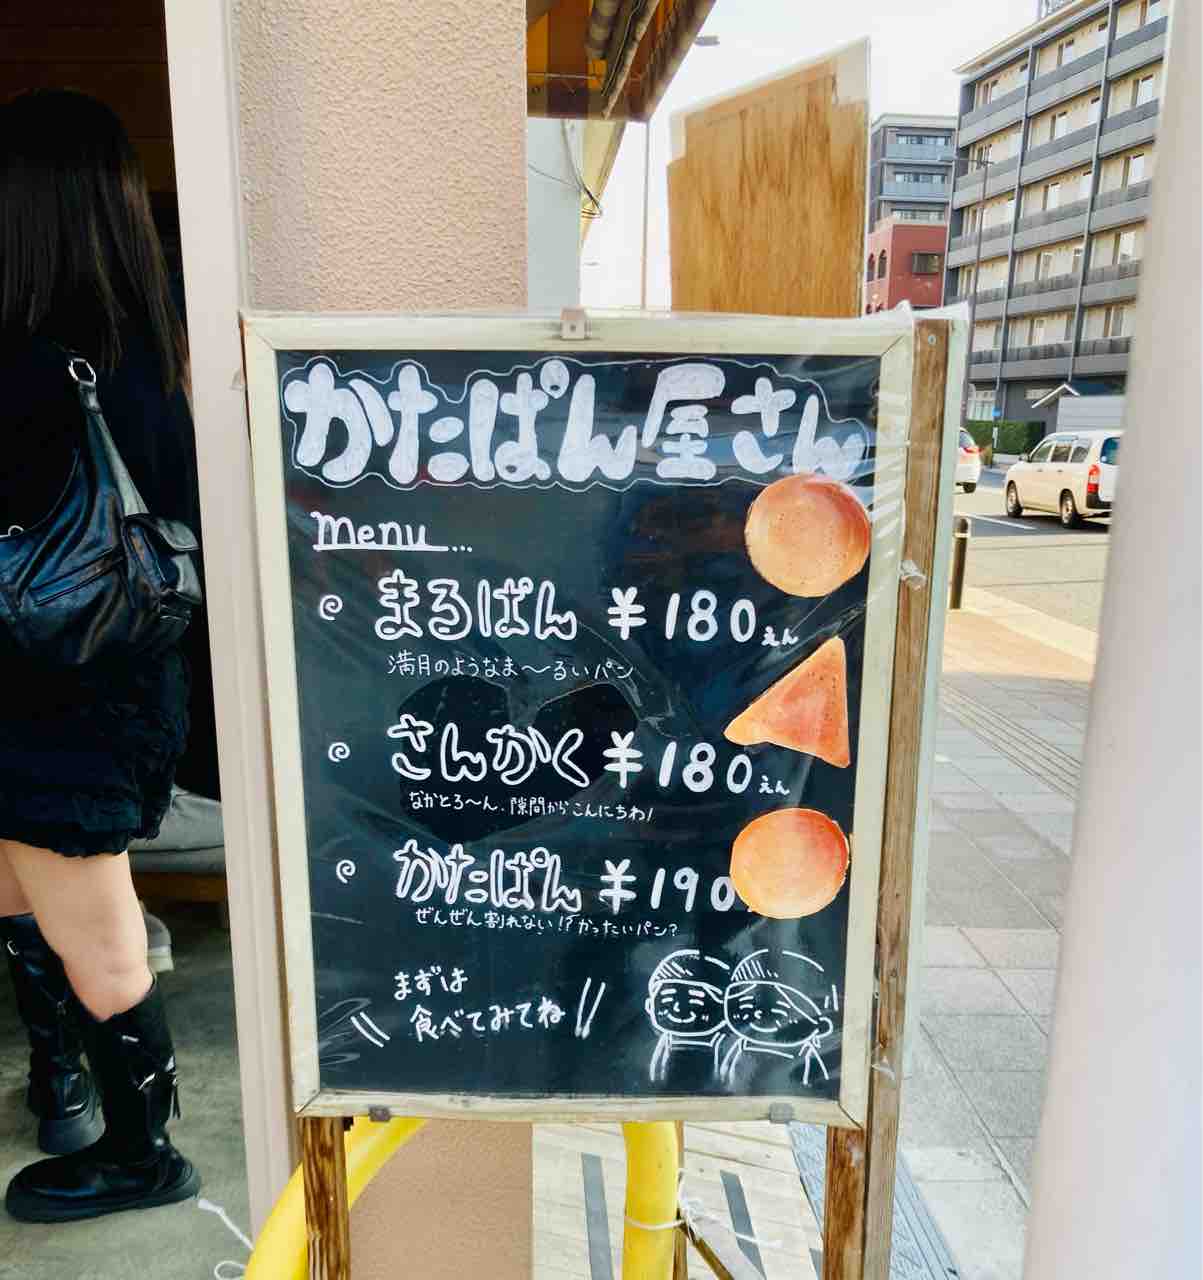 かたぱん屋さん
menu...
まるぱん ¥180えん
満月のようなま〜るいパン
さんかく ¥180えん
なかとろ〜ん、隙間からこんにちわ!
かたぱん ¥190
ぜんぜん割れない!?かったいパン?
まずは
食べてみてね